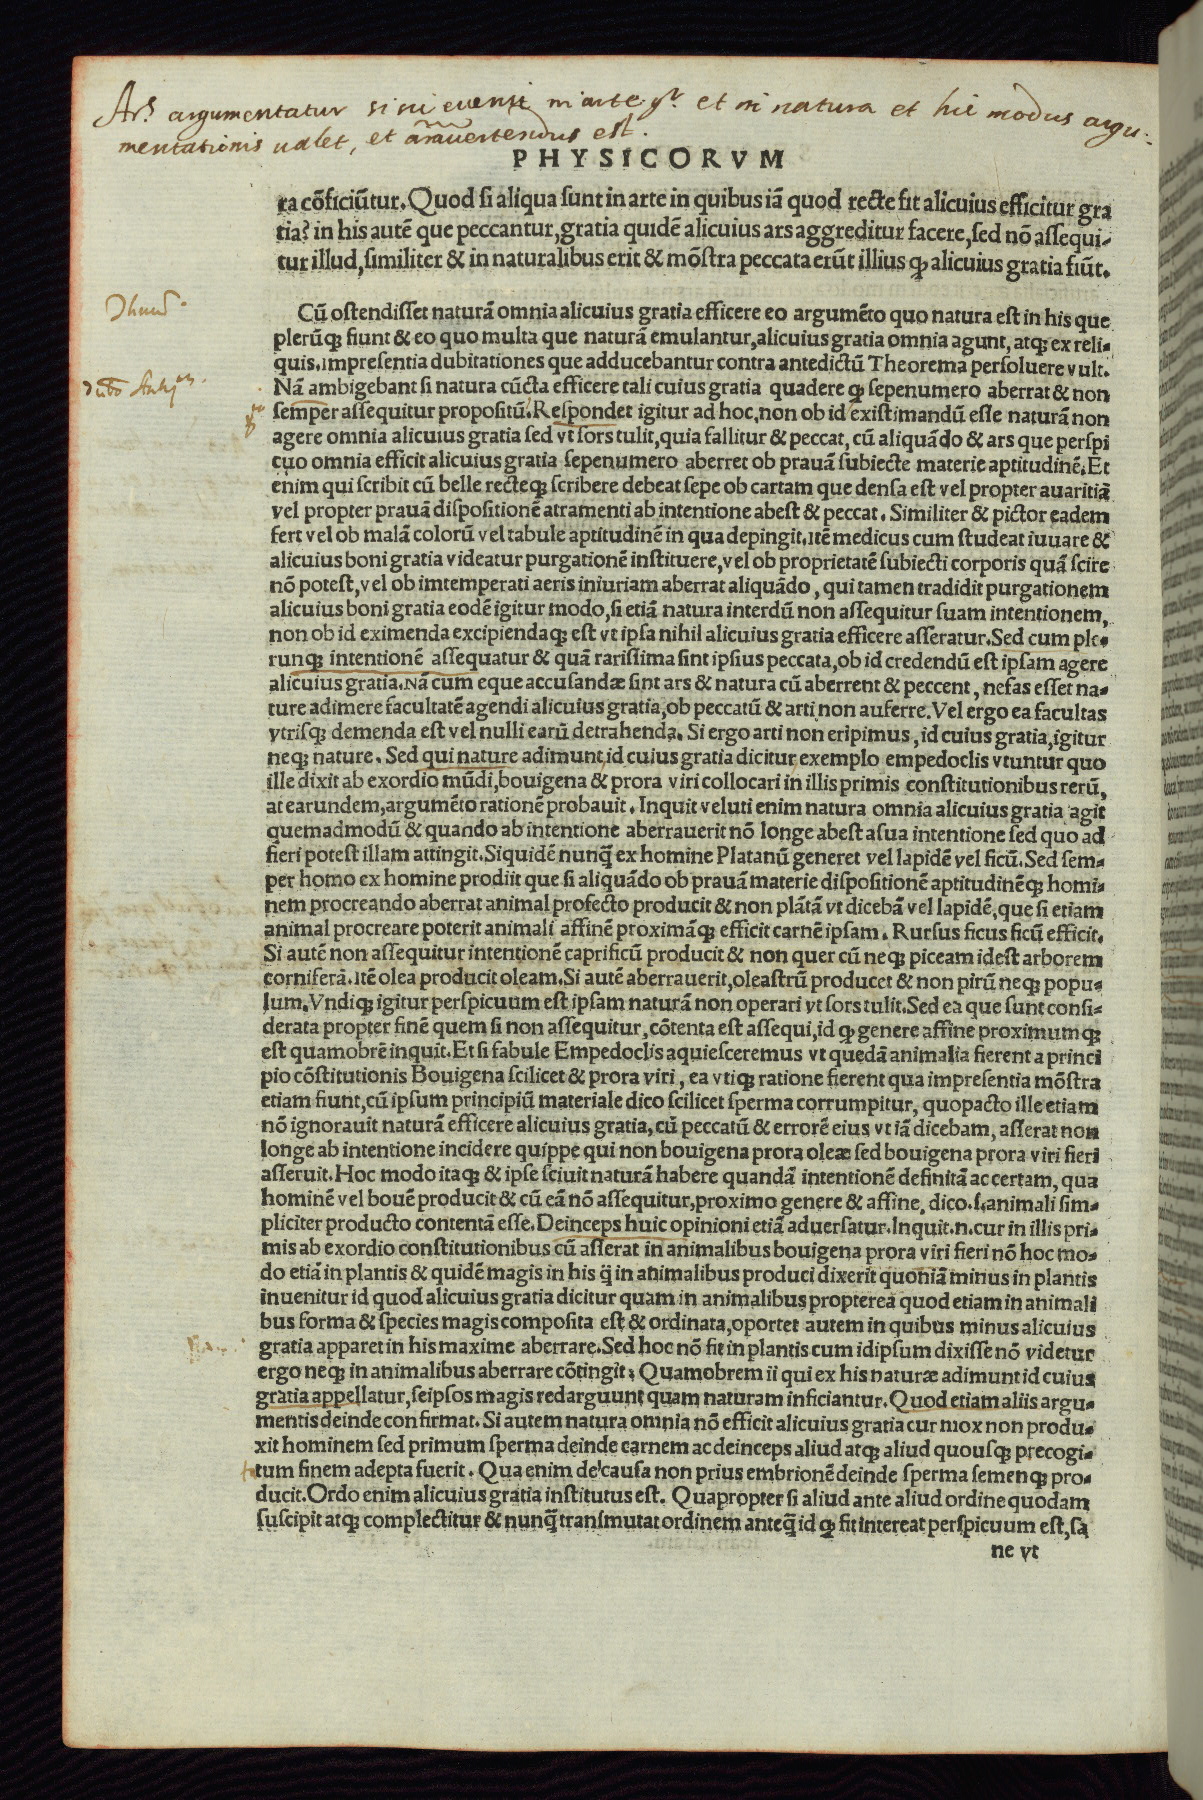 Ars argumentatur si sic evenit in arte gr et in natura et hic modus argu-
mentationis valet, et animadvertendus est.
PHYSICORVM
ra cõficiũtur. Quod si aliqua sunt in arte in quibus iã quod recte fit alicuius efficitur gra
tia? in his autẽ que peccantur, gratia quidẽ alicuius ars aggreditur facere, sed nõ assequi-
tur illud, similiter & in naturalibus erit & mõstra peccata erũt illius ꝙ alicuius gratia fiũt.
Cũ ostendisset naturã omnia alicuius gratia efficere eo argumẽto quo natura est in his que
plerũqꝫ fiunt & eo quo multa que naturã emulantur, alicuius gratia omnia agunt, atqꝫ ex reli-
quis. impresentia dubitationes que adducebantur contra antedictũ Theorema persoluere vult.
Nã ambigebant si natura cũcta efficere tali cuius gratia quadere ꝙ sepenumero aberrat & non
semper assequitur propositũ. Respondet igitur ad hoc, non ob id existimandũ esse naturã non
agere omnia alicuius gratia sed vt sors tulit, quia fallitur & peccat, cũ aliquãdo & ars que perspi
cuo omnia efficit alicuius gratia sepenumero aberret ob prauã subiecte materie aptitudinẽ. Et
enim qui scribit cũ belle recteqꝫ scribere debeat sepe ob cartam que densa est vel propter auaritiã
vel propter prauã dispositionẽ atramenti ab intentione abest & peccat. Similiter & pictor eadem
fert vel ob malã colorũ vel tabule aptitudinẽ in qua depingit. Itẽ medicus cum studeat iuuare &
alicuius boni gratia videatur purgationẽ instituere, vel ob proprietatẽ subiecti corporis quã scire
nõ potest, vel ob imtemperati aeris iniuriam aberrat aliquãdo, qui tamen tradidit purgationem
alicuius boni gratia eodẽ igitur modo, si etiã natura interdũ non assequitur suam intentionem,
non ob id eximenda excipiendaqꝫ est vt ipsa nihil alicuius gratia efficere asseratur. Sed cum ple-
runqꝫ intentionẽ assequatur & quã rarissima sint ipsius peccata, ob id credendũ est ipsam agere
alicuius gratia. Nã cum eque accusandæ sint ars & natura cũ aberrent & peccent, nefas esset na-
ture adimere facultatẽ agendi alicuius gratia, ob peccatũ & arti non auferre. Vel ergo ea facultas
vtrisqꝫ demenda est vel nulli earũ detrahenda. Si ergo arti non eripimus, id cuius gratia, igitur
neqꝫ nature. Sed qui nature adimunt id cuius gratia dicitur exemplo empedoclis vtuntur quo
ille dixit ab exordio mũdi, bouigena & prora viri collocari in illis primis constitutionibus rerũ,
at earundem, argumẽto rationẽ probauit. Inquit veluti enim natura omnia alicuius gratia agit
quemadmodũ & quando ab intentione aberrauerit nõ longe abest a sua intentione sed quo ad
fieri potest illam attingit. Siquidẽ nunq̃ ex homine Platanũ generet vel lapidẽ vel ficũ. Sed sem-
per homo ex homine prodiit que si aliquãdo ob prauã materie dispositionẽ aptitudinẽqꝫ homi-
nem procreando aberrat animal profecto producit & non plãtã vt dicebã vel lapidẽ, que si etiam
animal procreare poterit animali affinẽ proximãqꝫ efficit carnẽ ipsam. Rursus ficus ficũ efficit.
Si autẽ non assequitur intentionẽ caprificũ producit & non quer cũ neqꝫ piceam idest arborem
corniferã. Itẽ olea producit oleam. Si autẽ aberrauerit, oleastrũ producet & non pirũ neqꝫ popu-
lum. Vndiqꝫ igitur perspicuum est ipsam naturã non operari vt sors tulit. Sed ea que sunt consi-
derata propter finẽ quem si non assequitur, cõtenta est assequi, id ꝙ genere affine proximumqꝫ
est quamobrẽ inquit. Et si fabule Empedoclis aquiesceremus vt quedã animalia fierent a princi
pio cõstitutionis Bouigena scilicet & prora viri, ea vtiqꝫ ratione fierent qua impresentia mõstra
etiam fiunt, cũ ipsum principiũ materiale dico scilicet sperma corrumpitur, quopacto ille etiam
nõ ignorauit naturã efficere alicuius gratia, cũ peccatũ & errorẽ eius vt iã dicebam, asserat non
longe ab intentione incidere quippe qui non bouigena prora oleæ sed bouigena prora viri fieri
asseruit. Hoc modo itaqꝫ & ipse sciuit naturã habere quandã intentionẽ definitã ac certam, qua
hominẽ vel bouẽ producit & cũ eã nõ assequitur, proximo genere & affine, dico .s. animali sim-
pliciter producto contentã esse. Deinceps huic opinioni etiã aduersatur. Inquit .n. cur in illis pri-
mis ab exordio constitutionibus cũ asserat in animalibus bouigena prora viri fieri nõ hoc mo-
do etiã in plantis & quidẽ magis in his q̃ in animalibus produci dixerit quoniã minus in plantis
inuenitur id quod alicuius gratia dicitur quam in animalibus propterea quod etiam in animali
bus forma & species magis composita est & ordinata, oportet autem in quibus minus alicuius
gratia apparet in his maxime aberrare. Sed hoc nõ fit in plantis cum idipsum dixisse nõ videtur
ergo neqꝫ in animalibus aberrare cõtingit; Quamobrem ii qui ex his naturæ adimunt id cuius
gratia appellatur, seipsos magis redarguunt quam naturam inficiantur. Quod etiam aliis argu-
mentis deinde confirmat. Si autem natura omnia nõ efficit alicuius gratia cur mox non produ-
xit hominem sed primum sperma deinde carnem ac deinceps aliud atqꝫ aliud quousqꝫ precogi-
tum finem adepta fuerit. Qua enim de causa non prius embrionẽ deinde sperma semenqꝫ pro-
ducit. Ordo enim alicuius gratia institutus est. Quapropter si aliud ante aliud ordine quodam
suscipit atqꝫ complectitur & nunq̃ transmutat ordinem anteq̃ id ꝙ fit intereat perspicuum est, sa
ne vt